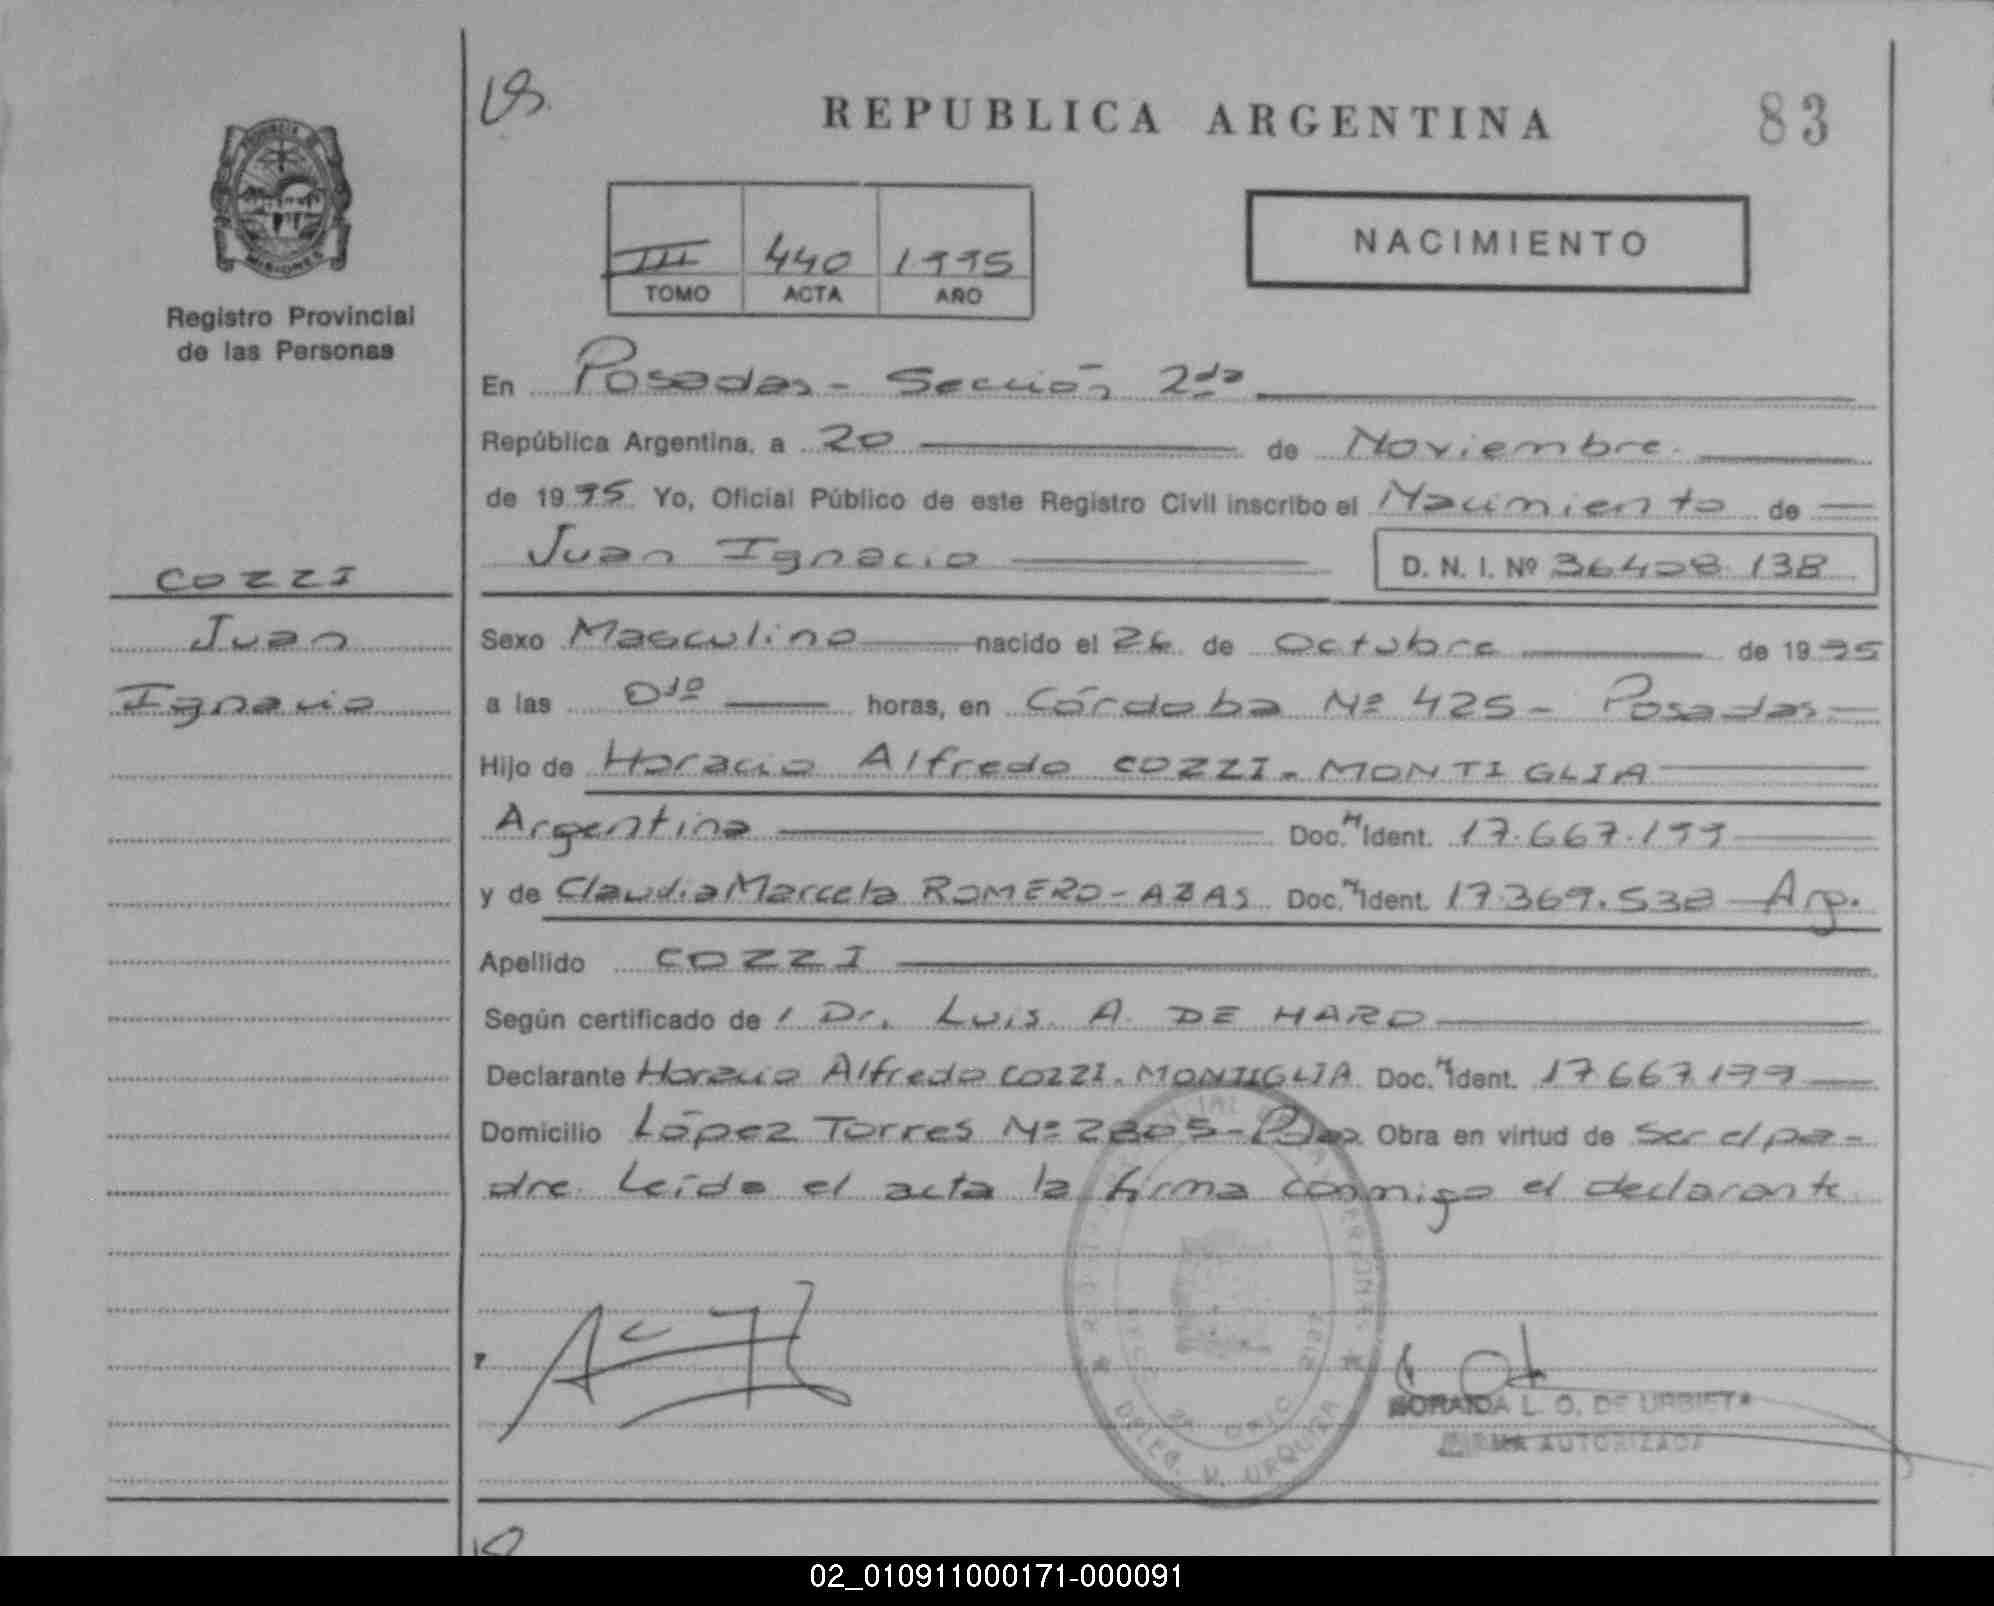 REPUBLICA ARGENTINA
83
III 440 1995
TOMO ACTA AÑO
NACIMIENTO
MISIONES
Registro Provincial
de las Personas
En Posadas - Sección 2da
República Argentina, a 20 de Noviembre.
de 1995 Yo, Oficial Público de este Registro Civil inscribo el Nacimiento de
Juan Ignacio D. N. I. Nº 36408.138
COZZI
Juan
Ignacio
Sexo Masculino nacido el 26 de Octubre de 1995
a las 0 10 horas, en Córdoba Nº 425 - Posadas.
Hijo de Horacio Alfredo COZZI - MONTIGLIA
Argentina Doc. N Ident. 17.667.199
y de Claudia Marcela ROMERO - ABAS Doc. N Ident. 17.369.538 Arg.
Apellido COZZI
Según certificado de / Dr. Luis A. DE HARO
Declarante Horacio Alfredo COZZI - MONTIGLIA Doc. N Ident. 17667199
Domicilio López Torres Nº 2805 - Pdas Obra en virtud de ser el pa-
dre. Leída el acta la firma conmigo el declarante.
DELEG. V. URQUIZA
SORAIDA L. O. DE URBIETA
FIRMA AUTORIZADA
02_010911000171-000091